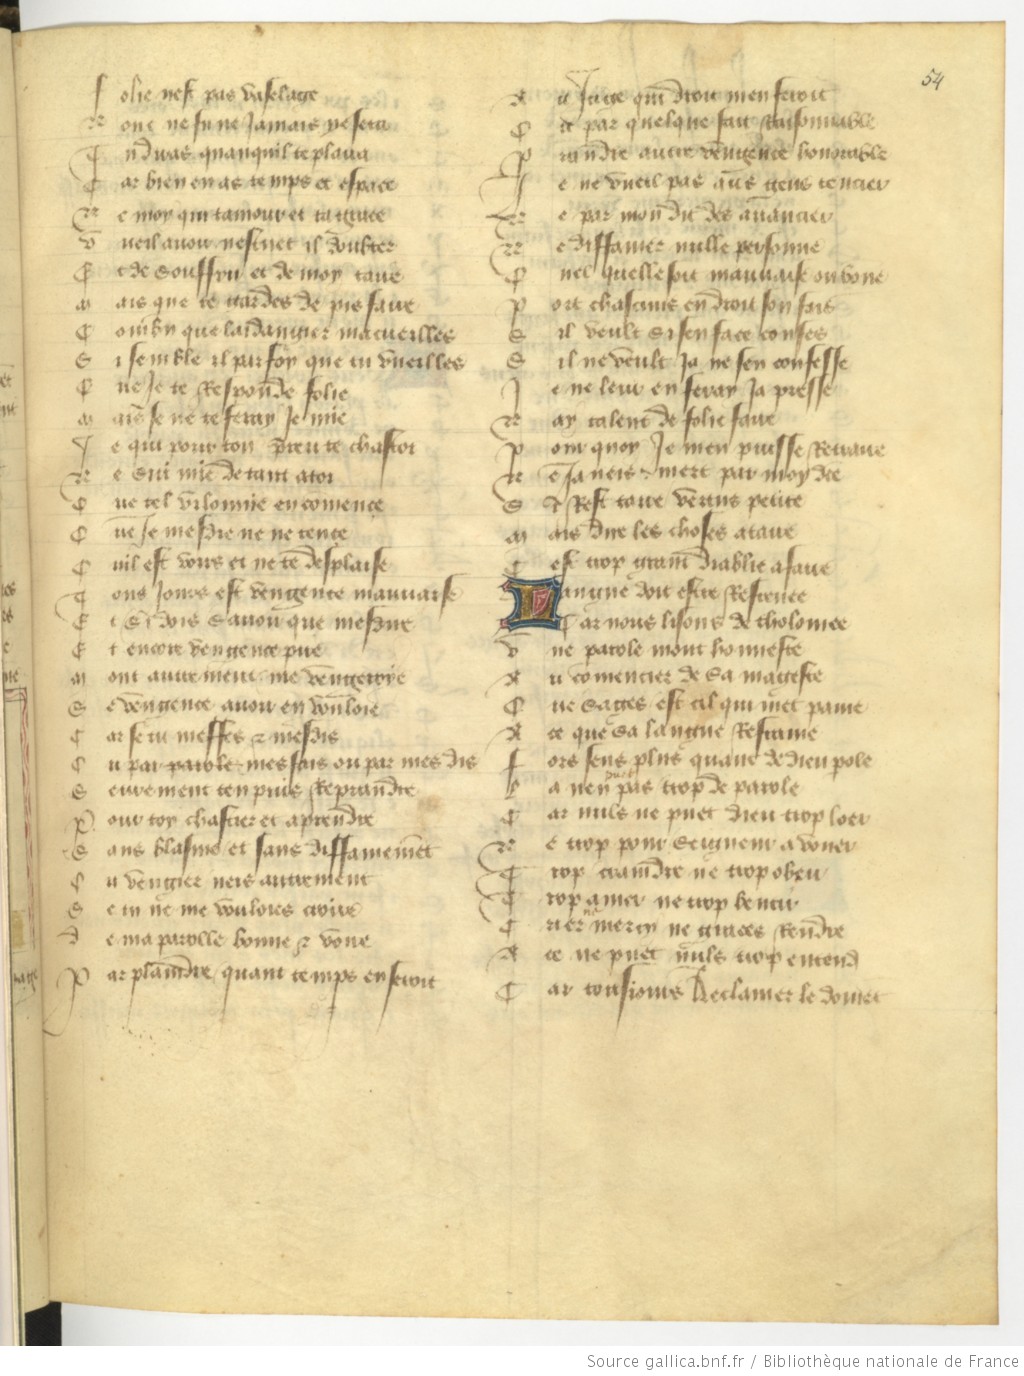 54
f olie nest pas vasselage
N onc ne fu ne jamais ne sera
T u diras quanquil te plaira
C ar bien en as temps et espace
N e moy qui tamour et ta grace
V ueil avoir nestuet il doubter
E t de souffrir et de moy taire
M ais que te gardes de pis faire
C ombien que laidangier macueilles
S i semble il par foy que tu vueilles
Q ue je te responde folie
M ais se ne te feray je mie
J e qui pour ton preu te chastoi
N e sui mie de tant a toi
Q ue tel vilonnie encomence
Q ue je mesdie ne ne tence
C uil est voirs et ne te desplaise
T ous jours est vengence mauvaise
E t si dois savoir que mesdire
E t encore vengence pire
M out autrement me vengeroye
S e vengence avoir en vouloie
C ar se tu meffes et mesdis
O u par parole mes fais ou par mes dis
S ecreement ten puis reprandre
P our toy chastier et aprendre
S ans blasme et sans diffamement
O u vengier neis autrement
S e tu ne me vouloies croire
D e ma parolle bonne et voire
P ar plaindre quant temps en seroit
A u juge qui droit men feroit
O u par quelque fait raisonnable
P randre autre vengence honorable
J e ne vueil pas aus gens tencier
N e par mon dit des avancier
N e diffamer nulle personne
Q uel quelle soit mauvaise ou bone
P ort chascuns endroit son fais
S il veult si sen face confes
S il ne veult ja ne sen confesse
J e ne leur en feray ja presse
N ay talent de folie faire
P our quoy je men puisse retraire
N e ja neis niert par moy dite
S i rest taire vertus petite
M ais dire les choses a taire
C est trop grant diablie a faire
L angue doit estre refrenee
C ar nous lisons de tholomee
V ne parole mout honneste
A u comencier de sa mageste
Q ue sages est cil qui met paine
A ce que sa langue refraine
F ors sens plus quant de dieu pole
L a nen puet pas trop de parole
C ar nuls ne puet dieu trop loer
N e trop pour seigneur avouer
T rop craindre ne trop obeir
T rop amer ne trop beneir
C rier mercy ne graces rendre
A ce ne puet nuls trop entend
C ar tousjours reclamer le doivet
Source gallica.bnf.fr / Bibliothèque nationale de France